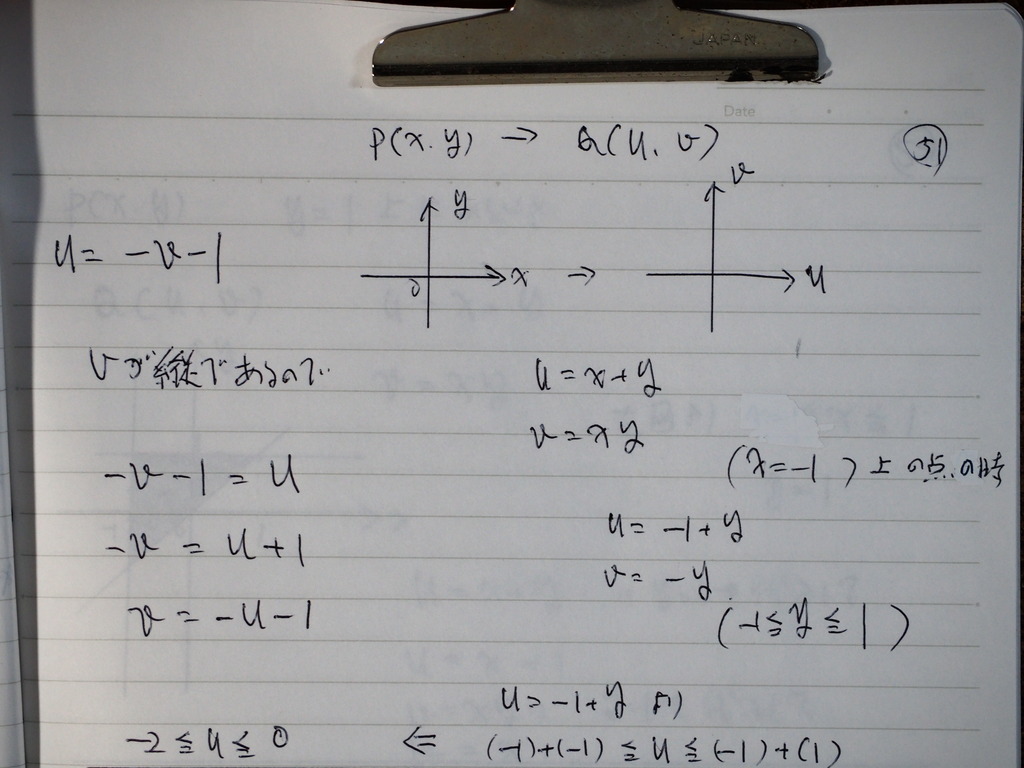 JAPAN
Date
P(x.y) → Q(u.v)
51
y
x
0
→
v
u
u = -v-1
vが縦であるので
-v-1 = u
-v = u+1
v = -u-1
u = x+y
v = xy
(x=-1) 上の点の時
u = -1+y
v = -y
(-1≦y≦1)
u = -1+y より
-2≦u≦0 ⇐ (-1)+(-1)≦u≦(-1)+(1)